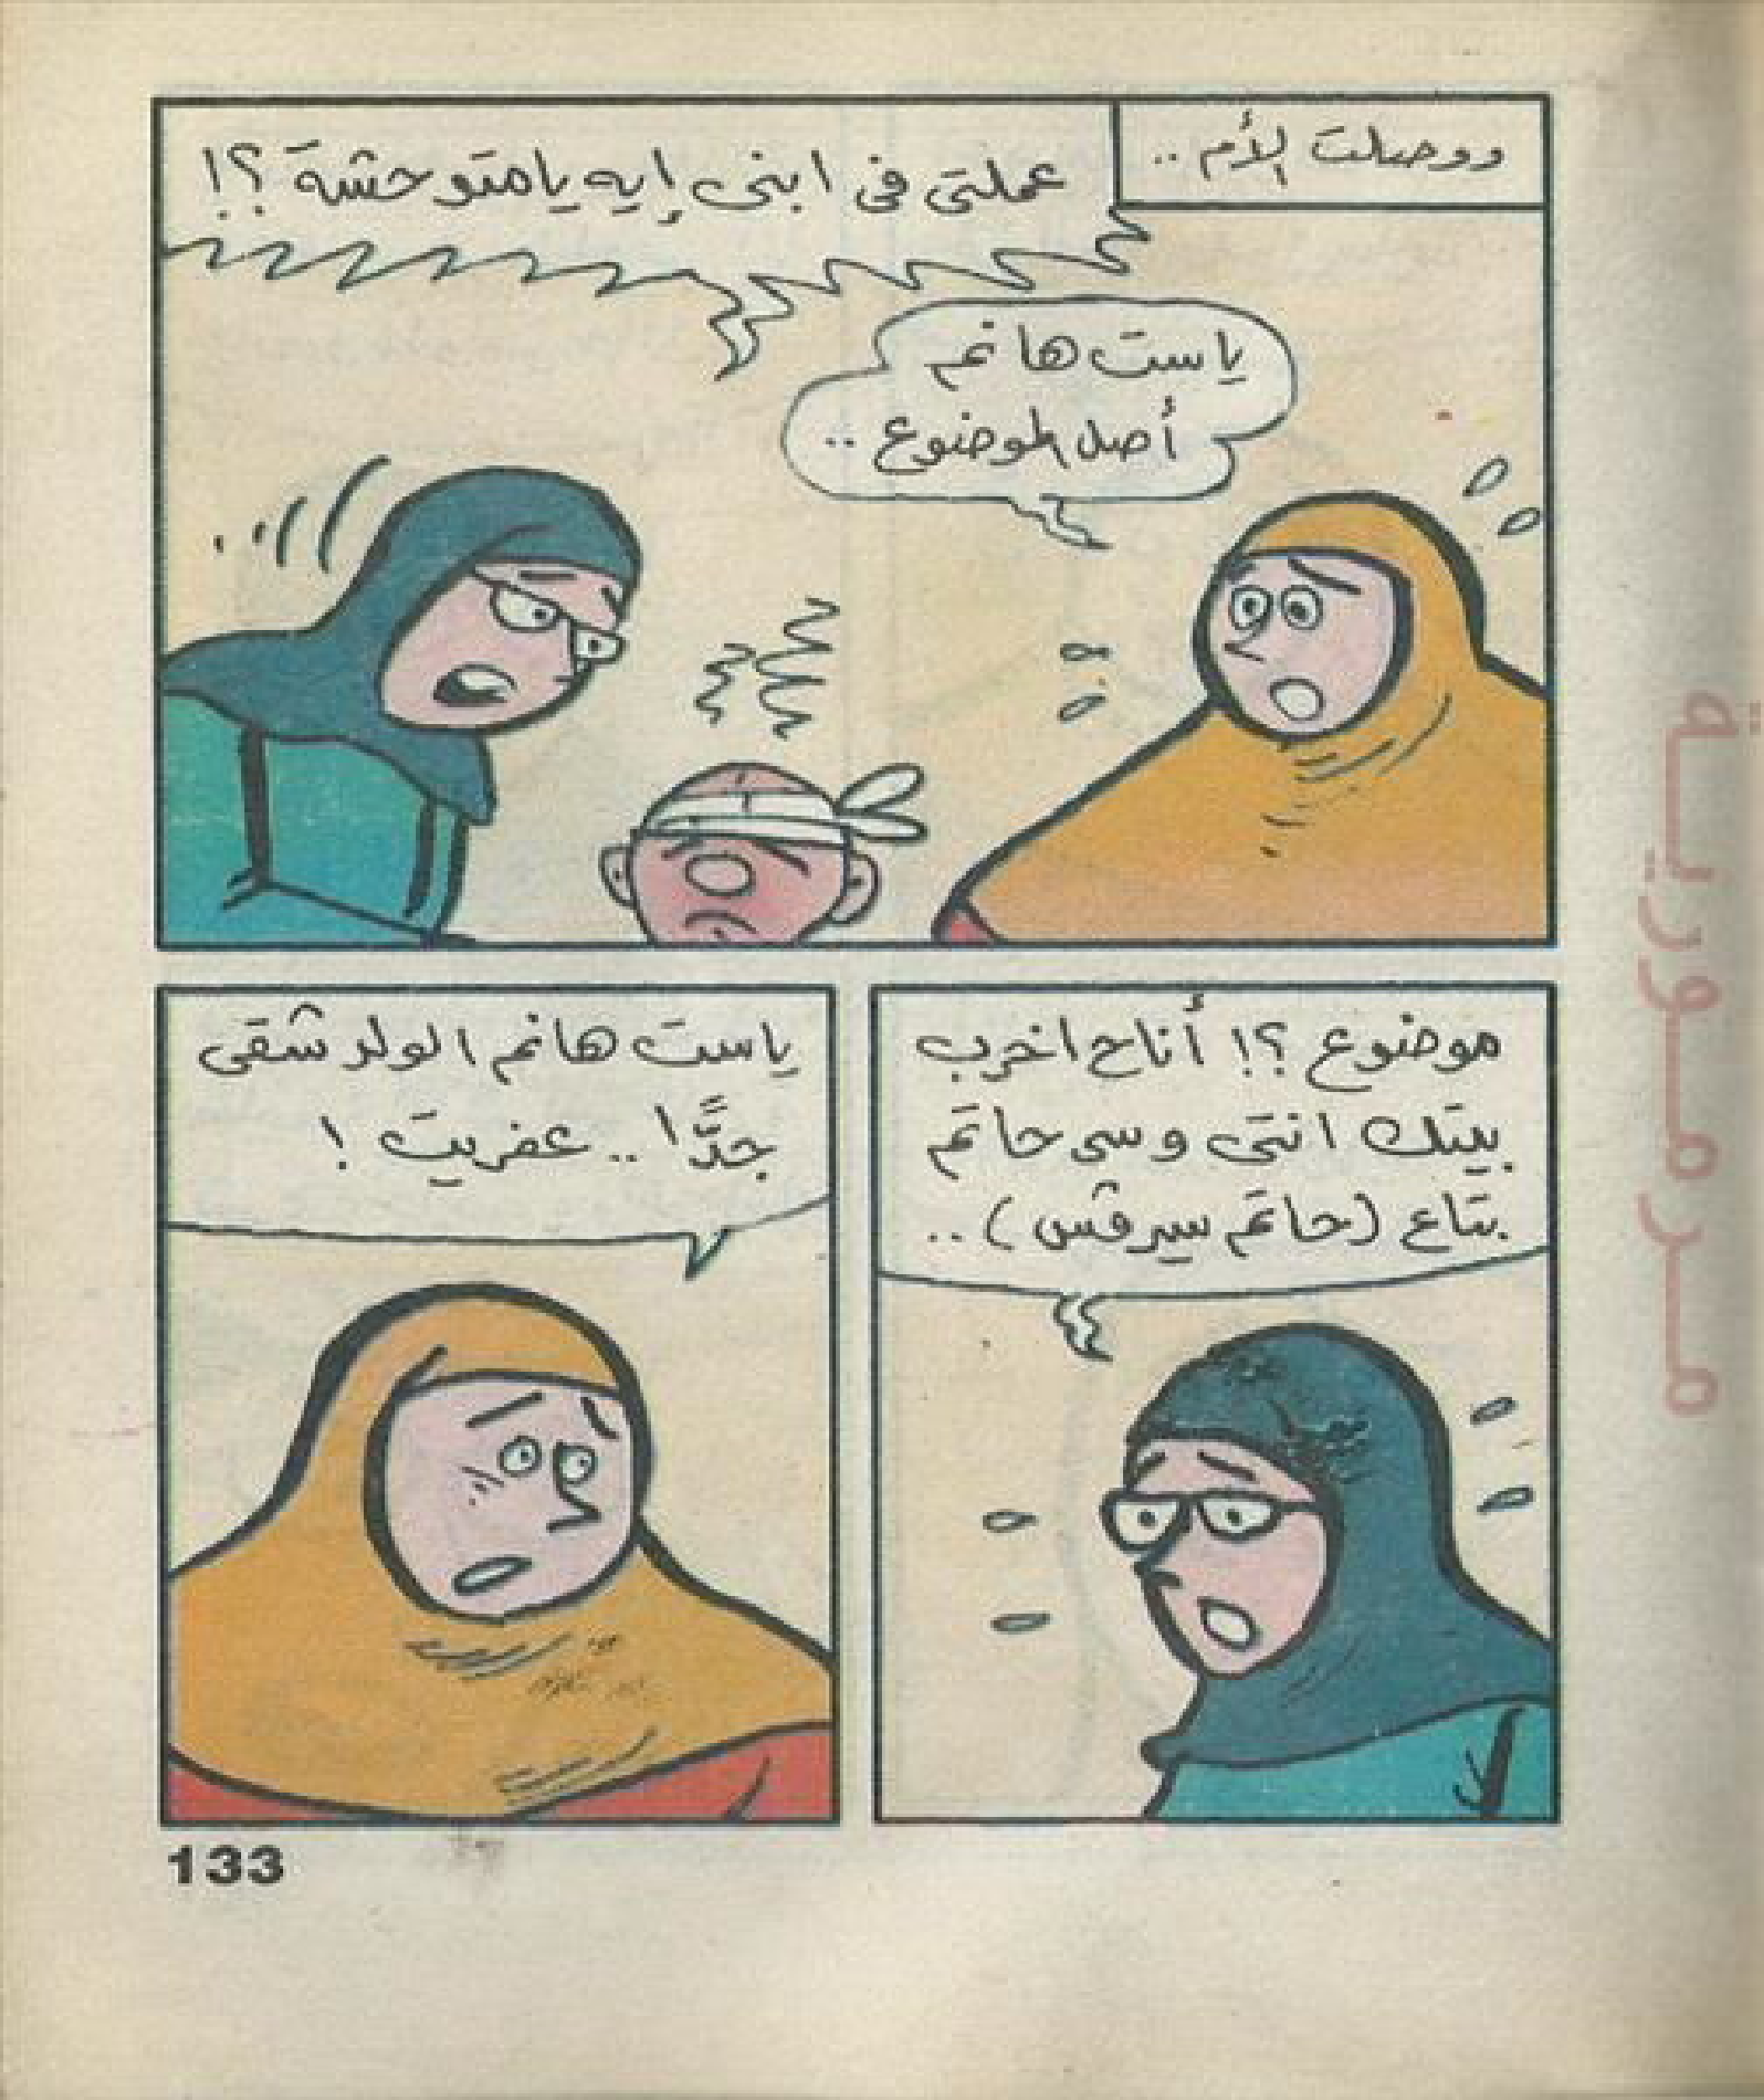 ووصلت الأم ..
عملتى فى ابنى إيه يا متوحشة ؟!
يا ست هانم
أصل الموضوع ..
موضوع ؟! أنا ح اخرب
بيتك انتى وسى حاتم
بتاع (حاتم سيرفس) ..
يا ست هانم الولد شقى
جدًّا .. عفريت !
133